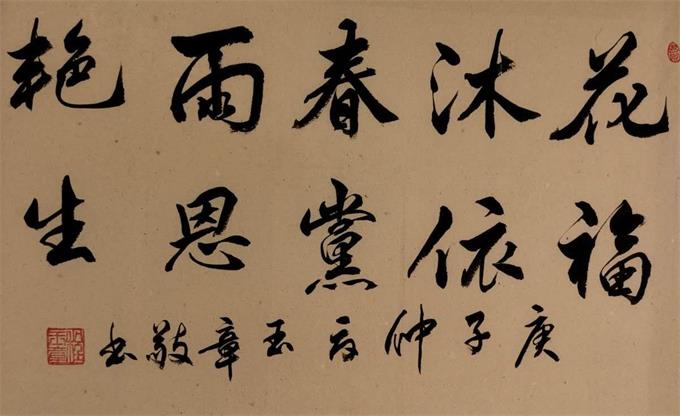 花沐春雨艳
福依黨恩生
庚子仲夏玉章敬书